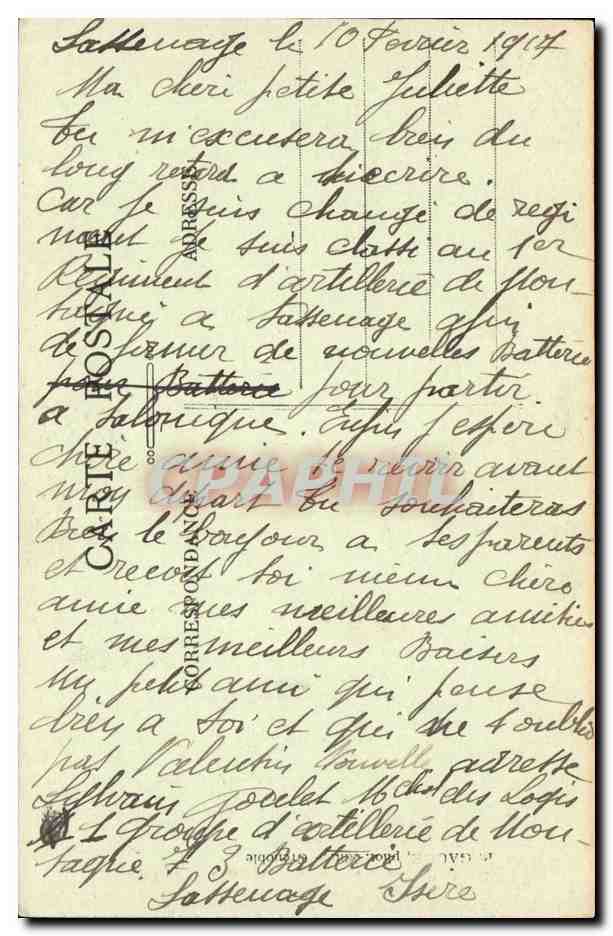 Sassenage le 10 Fevrier 1917
Ma cheri petite Juliette
Tu m'excusera bien du
long retard a t'ecrire.
Car je suis changé de regi
ment je suis classé au 1er
Regiment d'artillerie de Mon-
tagne a Sassenage afin
de former de nouvelles Batterie
pour Batterie pour partir
a Salonique. Enfin j'espere
chère amie te revoir avant
mon depart tu souhaiteras
bien le bonjour a tes parents
et recois toi même chère
amie mes meilleures amities
et mes meilleurs Baisers
un petit ami qui pense
bien a toi et qui ne t'oublie
pas Valentin Nouvelle adresse
Sylvain Goulet Mchal des Logis
1 Groupe d'artillerie de Mon-
tagne 3 Batterie
Sassenage Isere
CARTE POSTALE
ADRESSE
CORRESPONDANCE
CPAPHIL
Grenoble